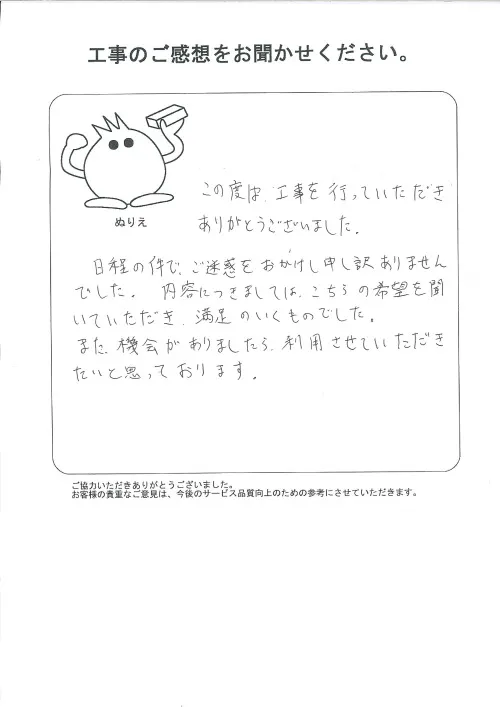 工事のご感想をお聞かせください。
ぬりえ
この度は、工事を行っていただき
ありがとうございました。
日程の件で、ご迷惑をおかけし申し訳ありません
でした。 内容につきましては、こちらの希望を聞
いていただき、満足のいくものでした。
また、機会がありましたら、利用させていただき
たいと思っております。
ご協力いただきありがとうございました。
お客様の貴重なご意見は、今後のサービス品質向上のための参考にさせていただきます。